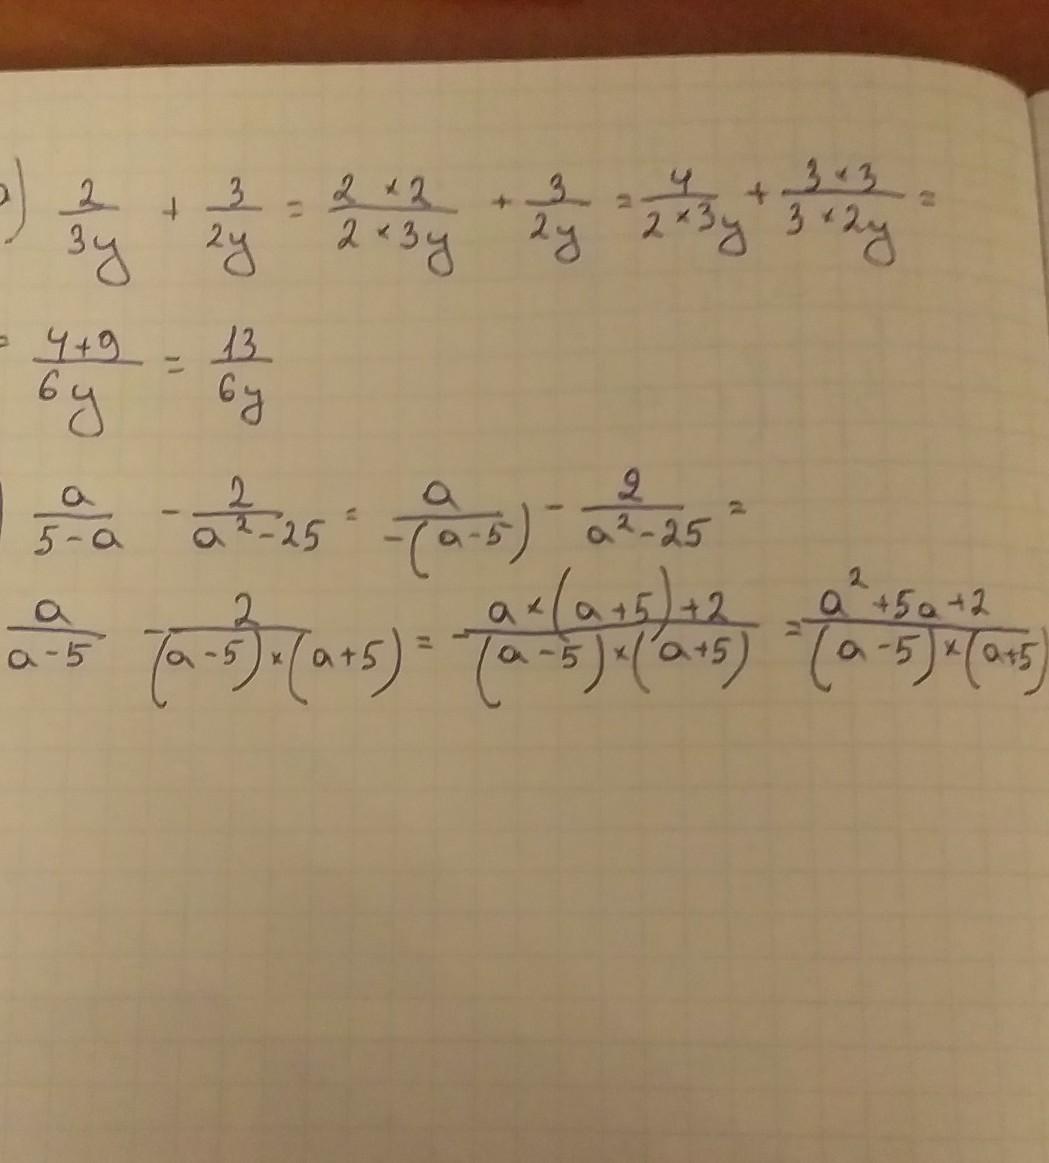 ) 2/3y + 3/2y = 2×2/2×3y + 3/2y = 4/2×3y + 3×3/3×2y =
= 4+9/6y = 13/6y
) a/5-a - 2/a²-25 = a/-(a-5) - 2/a²-25 =
a/a-5 - 2/(a-5)×(a+5) = - a×(a+5)+2/(a-5)×(a+5) = a²+5a+2/(a-5)×(a+5)